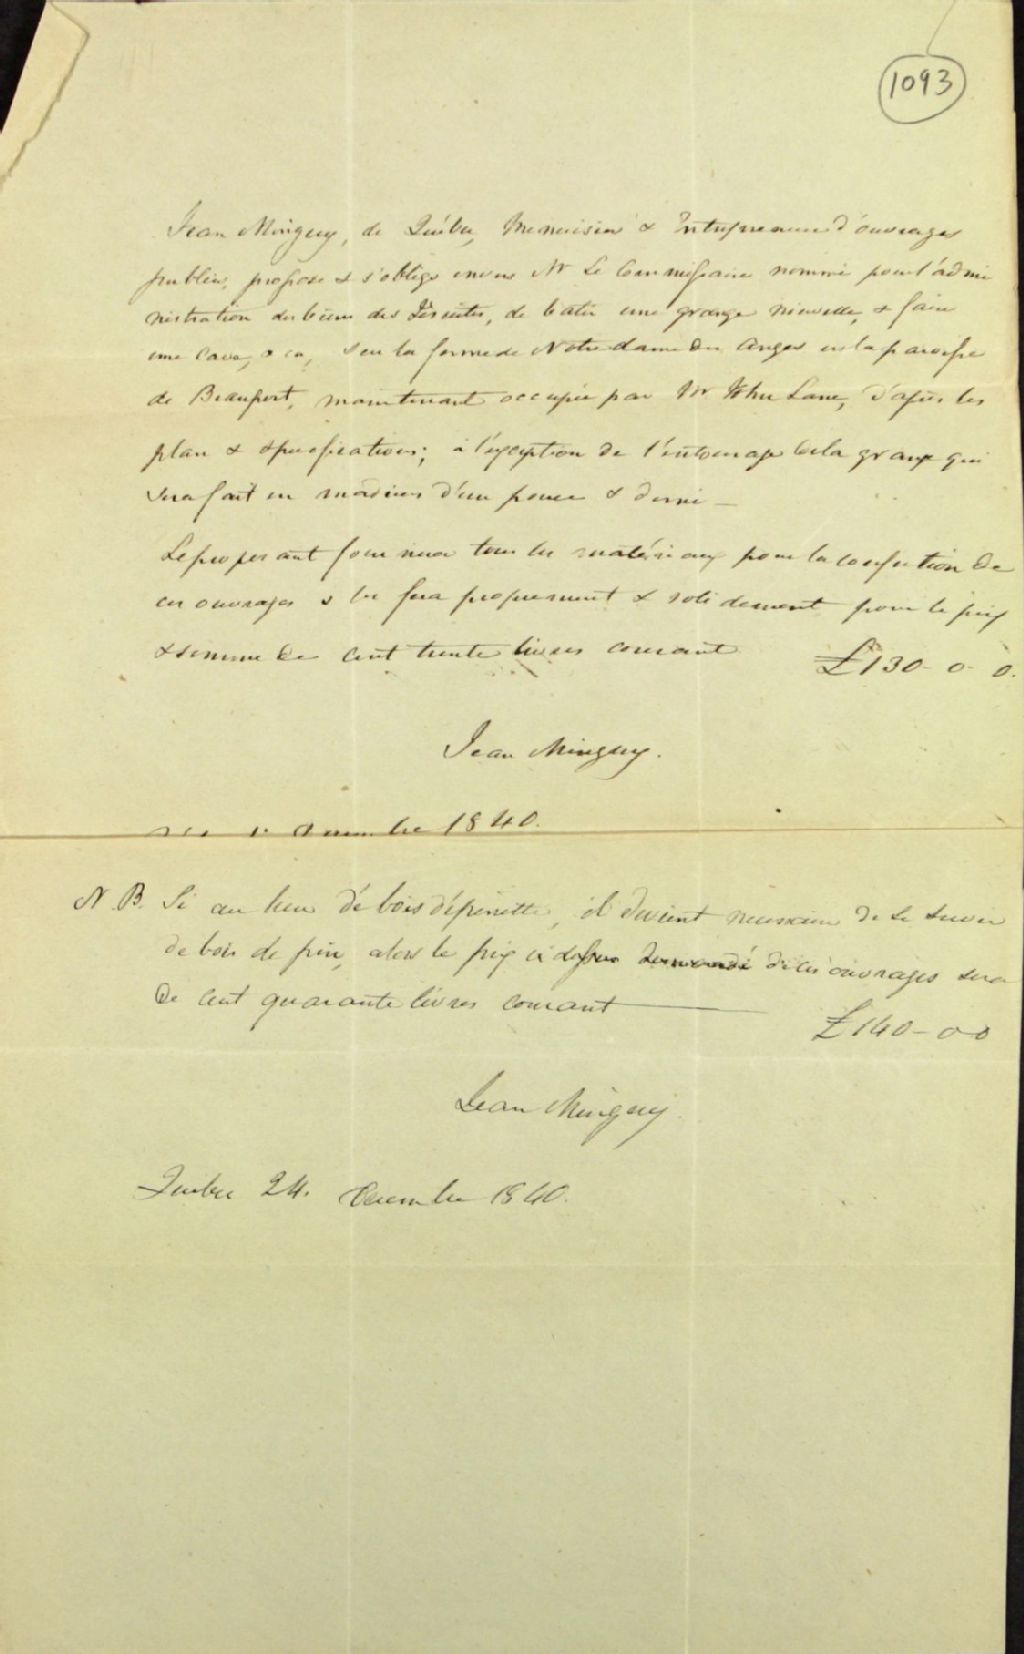 1093
Jean Minguy, de Québec, Menuisier & Entrepreneur d'ouvrages
publics, propose & s'oblige envers Mr Le Commissaire nommé pour l'admi
nistration des biens des Jésuites, de batir une grange nieuvelle, & faire
une cave, & ca, sur la ferme de Notre dame des Anges en la paroisse
de Beauport, maintenant occupée par Mr John Lane, d'après les
plan & spécifications; à l'exception de l'entourage de la grange qui
sera fait en madriers d'un pouce & demi —
Le proposant fournira tous les matériaux pour la confection de
ces ouvrages & les fera proprement & solidement pour le prix
& somme de cent trente livres courant £130-0-0.
Jean Minguy.
1840.
N.B. Si au lieu de bois d'épinette, il devient nécessaire de se servir
de bois de pin, alors le prix ci dessus demandé de ces ouvrages sera
de cent quarante livres courant — £140-00
Jean Minguy
Québec 24. Décembre 1840.